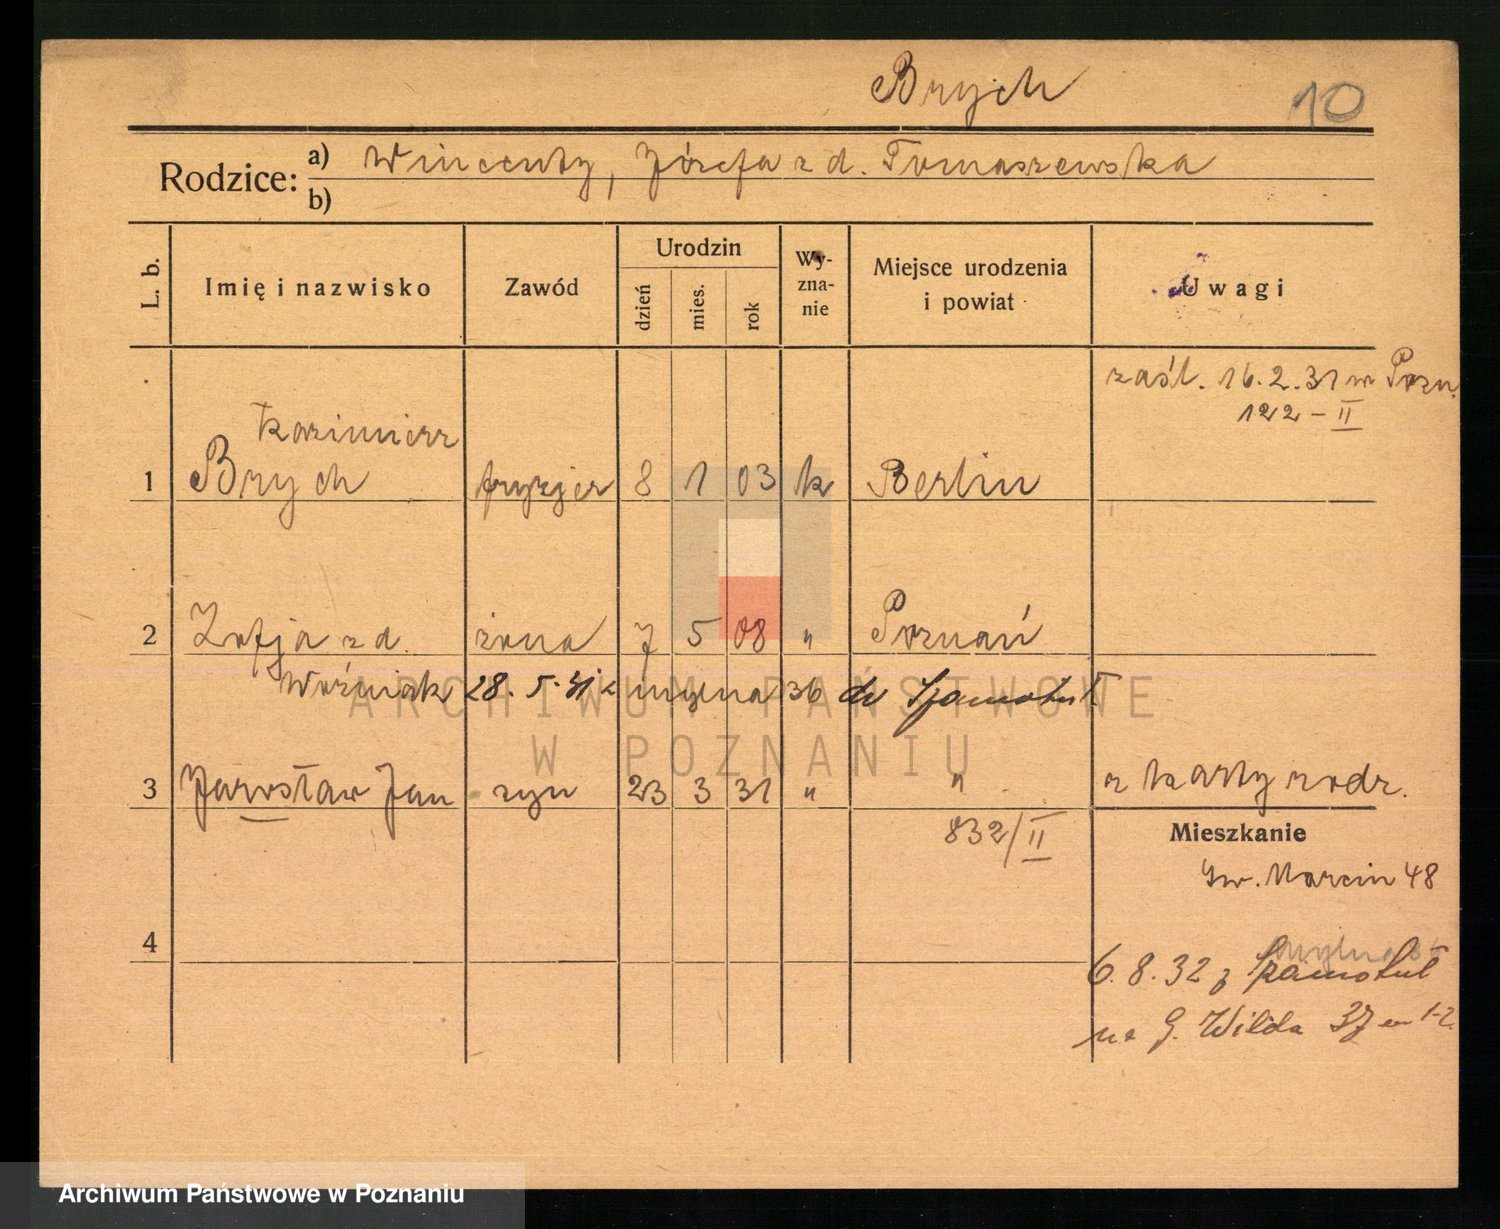 Brych
10
Rodzice: a) Wincenty, Józefa z d. Tomaszewska
b)
L. b. Imię i nazwisko Zawód Urodzin dzień mies. rok Wy-zna-nie Miejsce urodzenia i powiat Uwagi
zaśl. 16.2.31 w Pozn.
122 - II
Kazimierz
1 Brych fryzjer 8 1 03 k Berlin
2 Zofja z d. żona 7 5 08 " Poznań
Woźniak 28. 5. 31 z Młyńska 36 do Szamotuł
3 Jarosław Jan syn 23 3 31 " " z karty rodz.
832/II
Mieszkanie
Św. Marcin 48
4
6.8.32 z Szamotuł
na G. Wilda 37 m 1-2.
ARCHIWUM PAŃSTWOWE
W POZNANIU
Archiwum Państwowe w Poznaniu